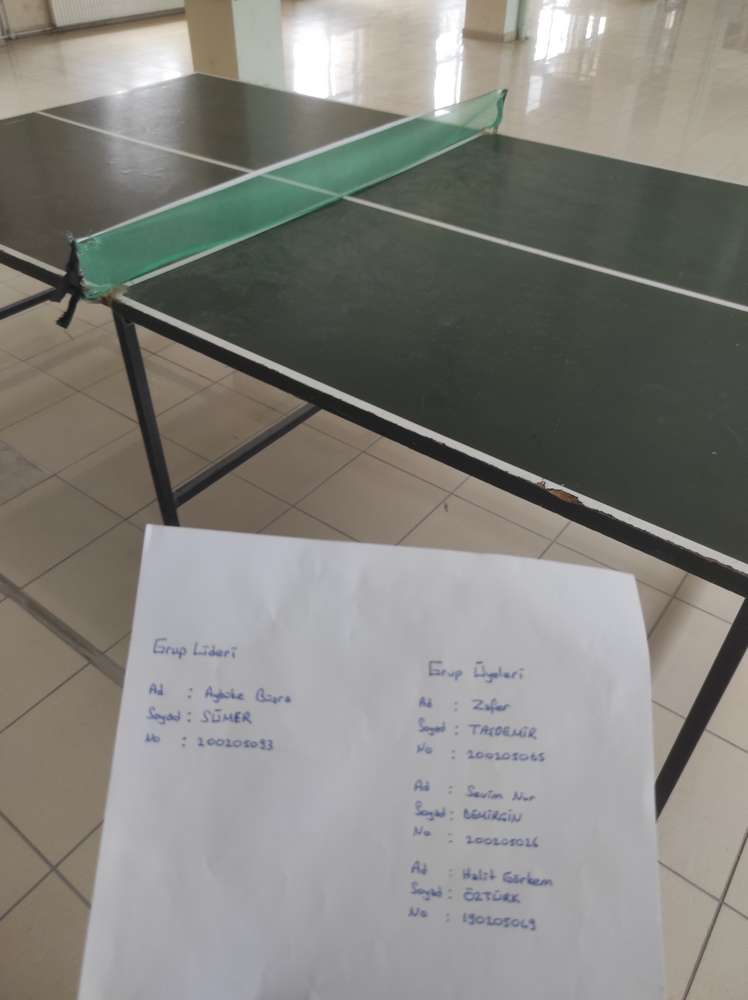 Grup Lideri
Ad : Aybüke Büşra
Soyad : SÜMER
No : 200205093
Grup Üyeleri
Ad : Zafer
Soyad : TAŞDEMİR
No : 200205065
Ad : Sevim Nur
Soyad : DEMİRGİN
No : 200205026
Ad : Halit Görkem
Soyad : ÖZTÜRK
No : 190205069